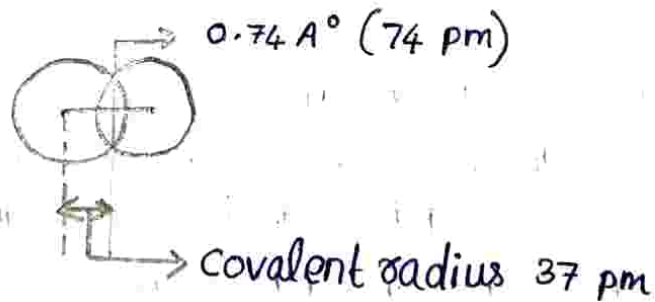 0.74 A° (74 pm)
Covalent radius 37 pm